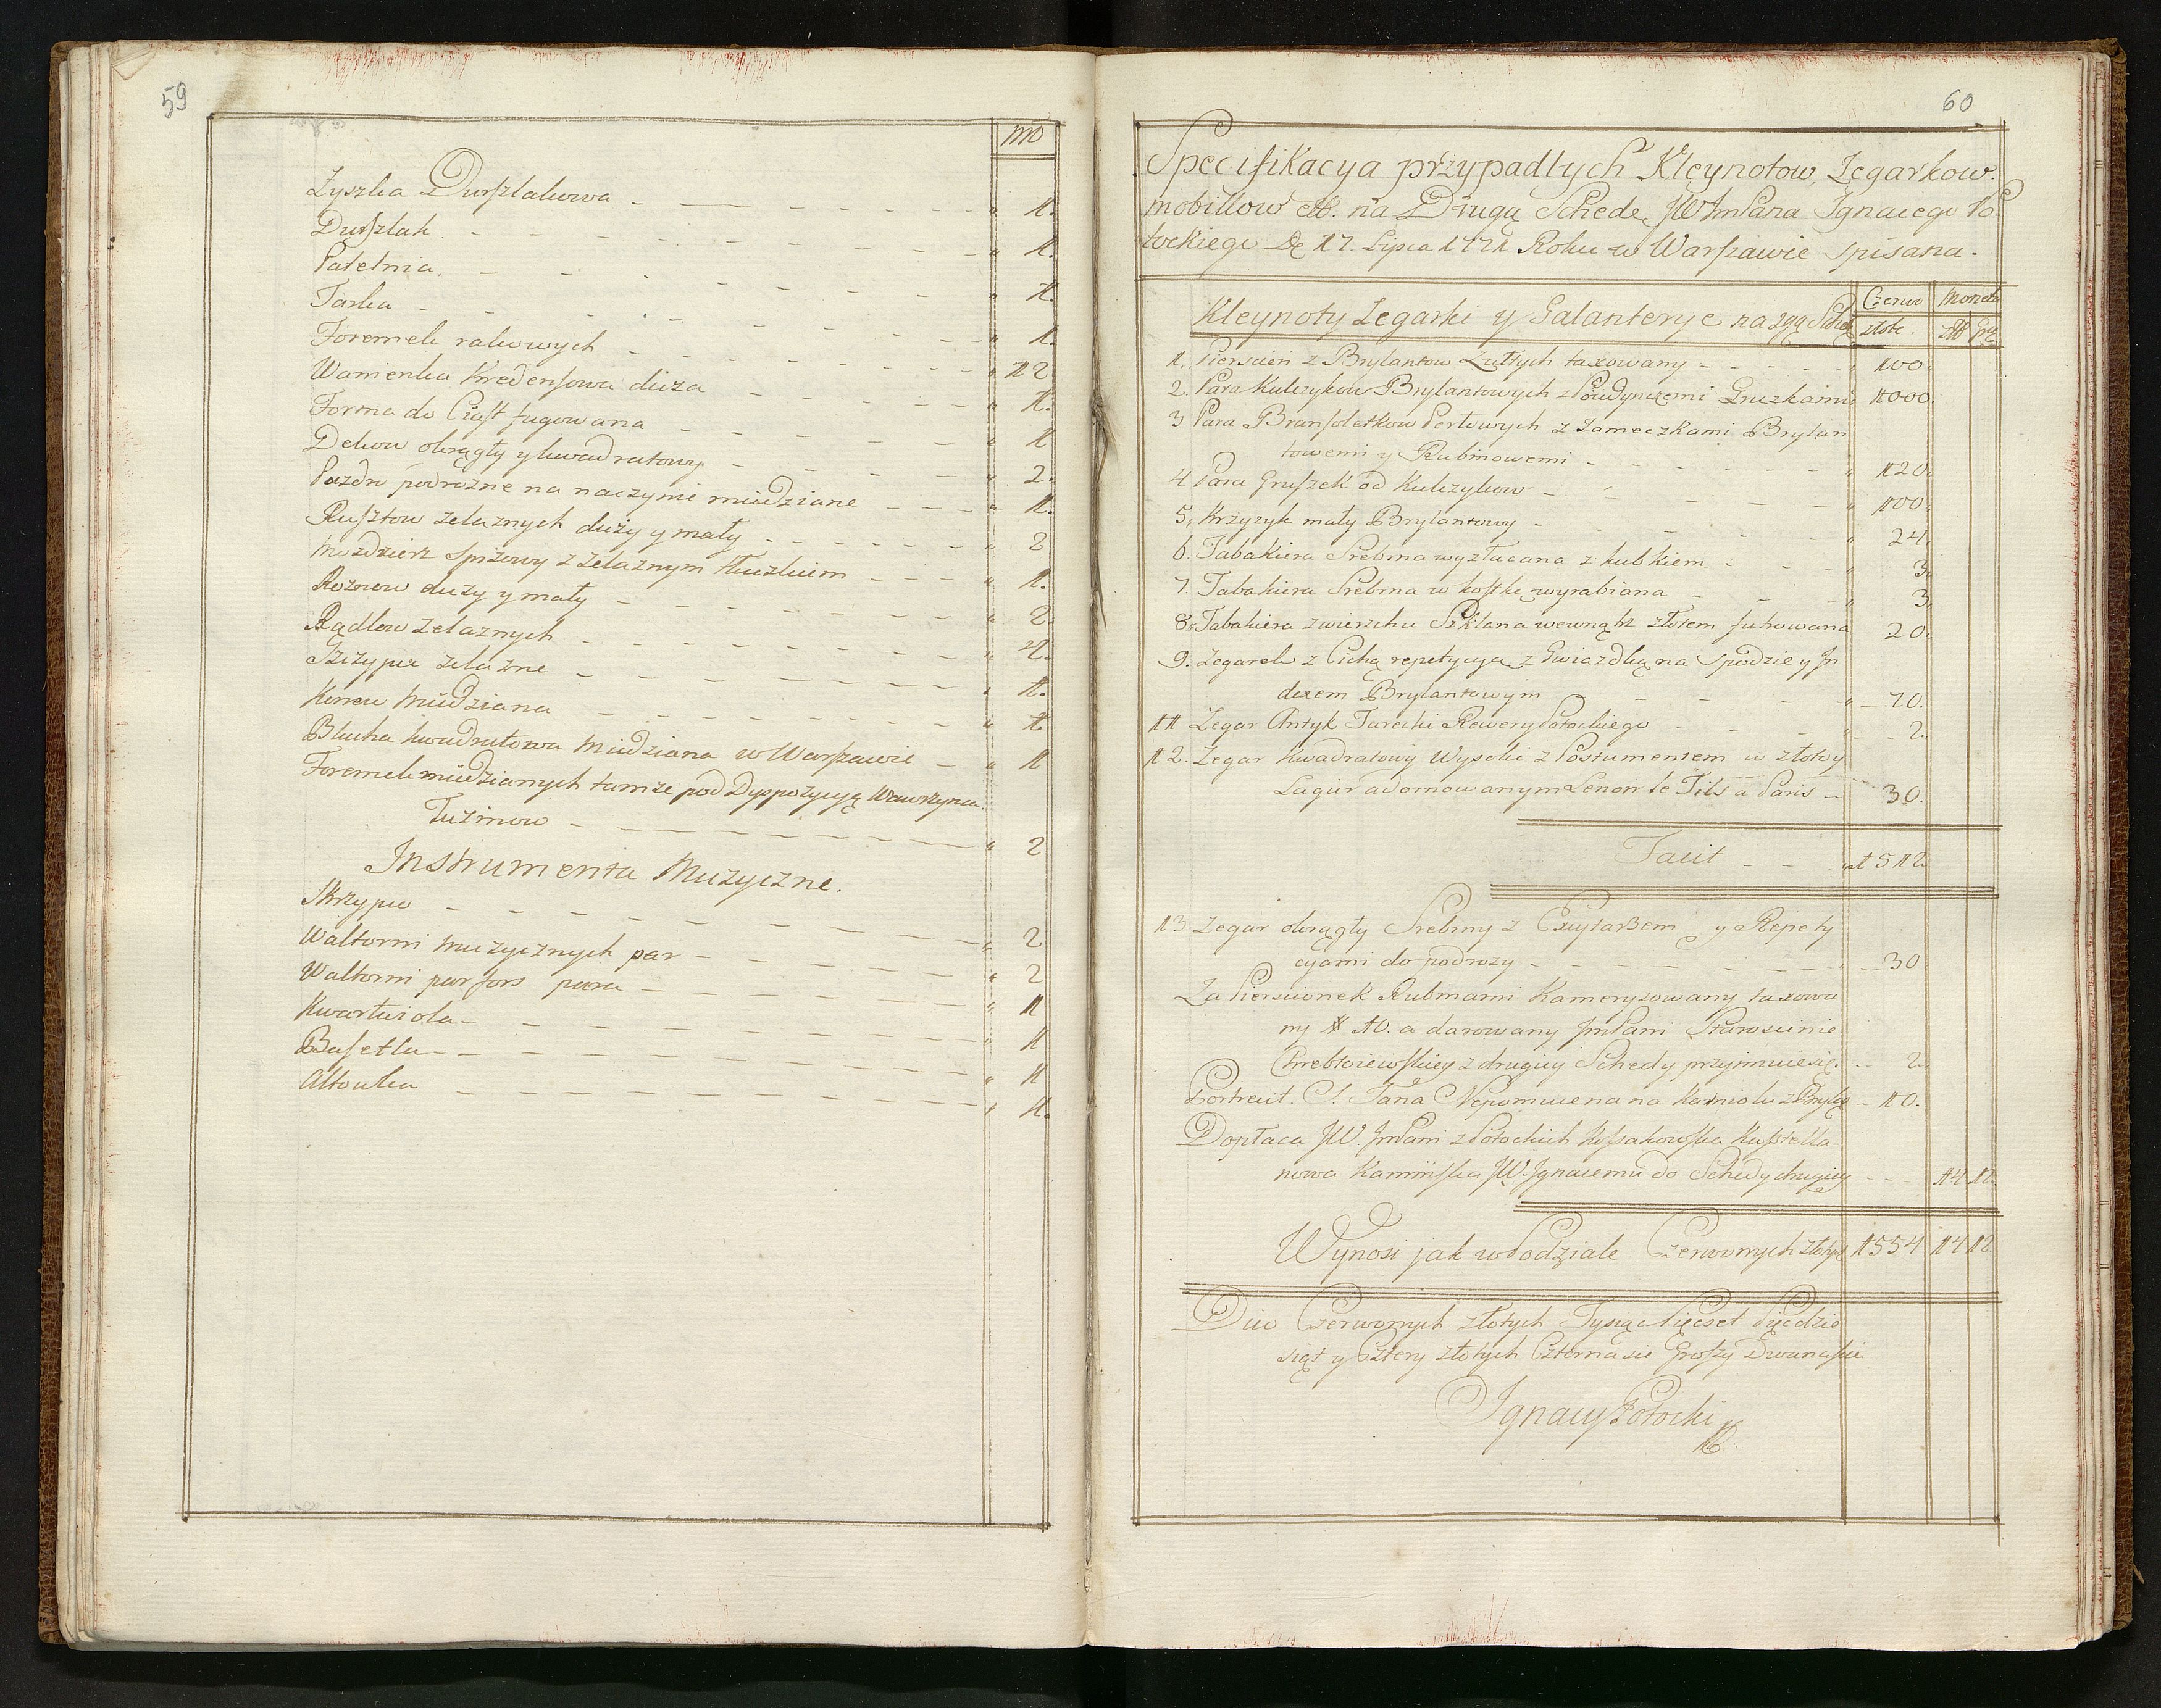 59
No
Łyszka Durszlakowa - - - - " 1.
Durszlak - - - - " 1.
Patelnia - - - - " 1.
Tarka - - - - " 1.
Foremek rakowych - - - - " 12
Wanienka Kredensowa duża - - - - " 1.
Forma do Ciast fugowana - - - - " 1
Dekow okrągły y kwadratowy - - - - " 2.
Puzdro podrożne na naczynie miedziane - - - " 1.
Rusztow żelaznych duży y mały - - - - " 2
Mozdzierz Spiżowy z żelaznym tłuczkiem - - - " 1.
Rożnow duży y mały - - - - " 2.
Rądlow żelaznych - - - - " 4.
Szczypce żelazne - - - - " 1.
Konew Miedziana - - - - " 1
Blacha kwadratowa Miedziana w Warszawie - " 1
Foremek miedzianych tamże pod Dyspozycyą Wawrzynca.
Tuzinow - - - - " 2
Instrumenta Muzyczne.
Skrzypce - - - - " 2
Waltorni Muzycznych par - - - - " 2
Waltorni parfors para - - - - " 1
Kwartwiola - - - - " 1
Basetla - - - - " 1
Altowka - - - - " 1.
60
Specifikacya przypadłych Kleynotow, Zegarkow.
mobillow etc. na Drugą Schedę JW JmPana Ignacego Po-
tockiego De 17. Lipca 1771 Roku w Warszawie spisana.
Kleynoty Zegarki y Galanterye na 2gą Schedę
Czerw. złote. Moneta zł gr.
1. Pierscień z Brylantow Żułtych taxowany - - - - " 100.
2. Para Kulczykow Brylantowych z Poiedynczemi Gruszkami " 1000.
3 Para Bransoletkow Perłowych z Zameczkami Brylan
towemi y Rubinowemi - - - - " 120.
4 Para Gruszek od Kulczykow - - - - " 100.
5. Krzyzyk mały Brylantowy - - - - " 24.
6. Tabakiera Srebrna wyzłacana z kubkiem - - - " 3.
7. Tabakiera Srebrna w kostkę wyrabiana - - - " 3.
8. Tabakiera zwierzchu Szklana wewnątrz złotem futrowana 20.
9. Zegarek z Cichą repetycyą z Gwiazdką na spodzie y In
dexem Brylantowym - - - - " 70.
11 Zegar Antyk Turecki Rewery Potockiego - - - - 2.
12. Zegar Kwadratowy Wysoki z Postumentem w złotey
Lagur adornowanym Lenoir le Fils a Paris - - 30.
Facit - - - " 1512.
13 Zegar okrągły Srebrny z Excytarzem y Repety
cyami do podrozy - - - - 30.
Za Piersiionek Rubinami Kameryzowany taxowa
ny # 10. a darowany JmPani Starościnie
Chreblowskiey z drugiey Schedy przyimuie się. - - 2.
Portreit. S. Jana Nepomucena na Karniolu z Bryla - 10.
Dopłaca JW. JmPani z Potockich Kossakowska Kasztella-
nowa Kamiińska JW. Ignacemu do Schedy drugiey - - - 14 12.
Wynosi jak w Podziale Czerwonych złotych 1554 14 12.
Dico Czerwonych złotych Tysiąc Pięcset Pięcdzie
siąt y Cztery złotych Czternascie Groszy Dwanascie
Ignacy Potocki